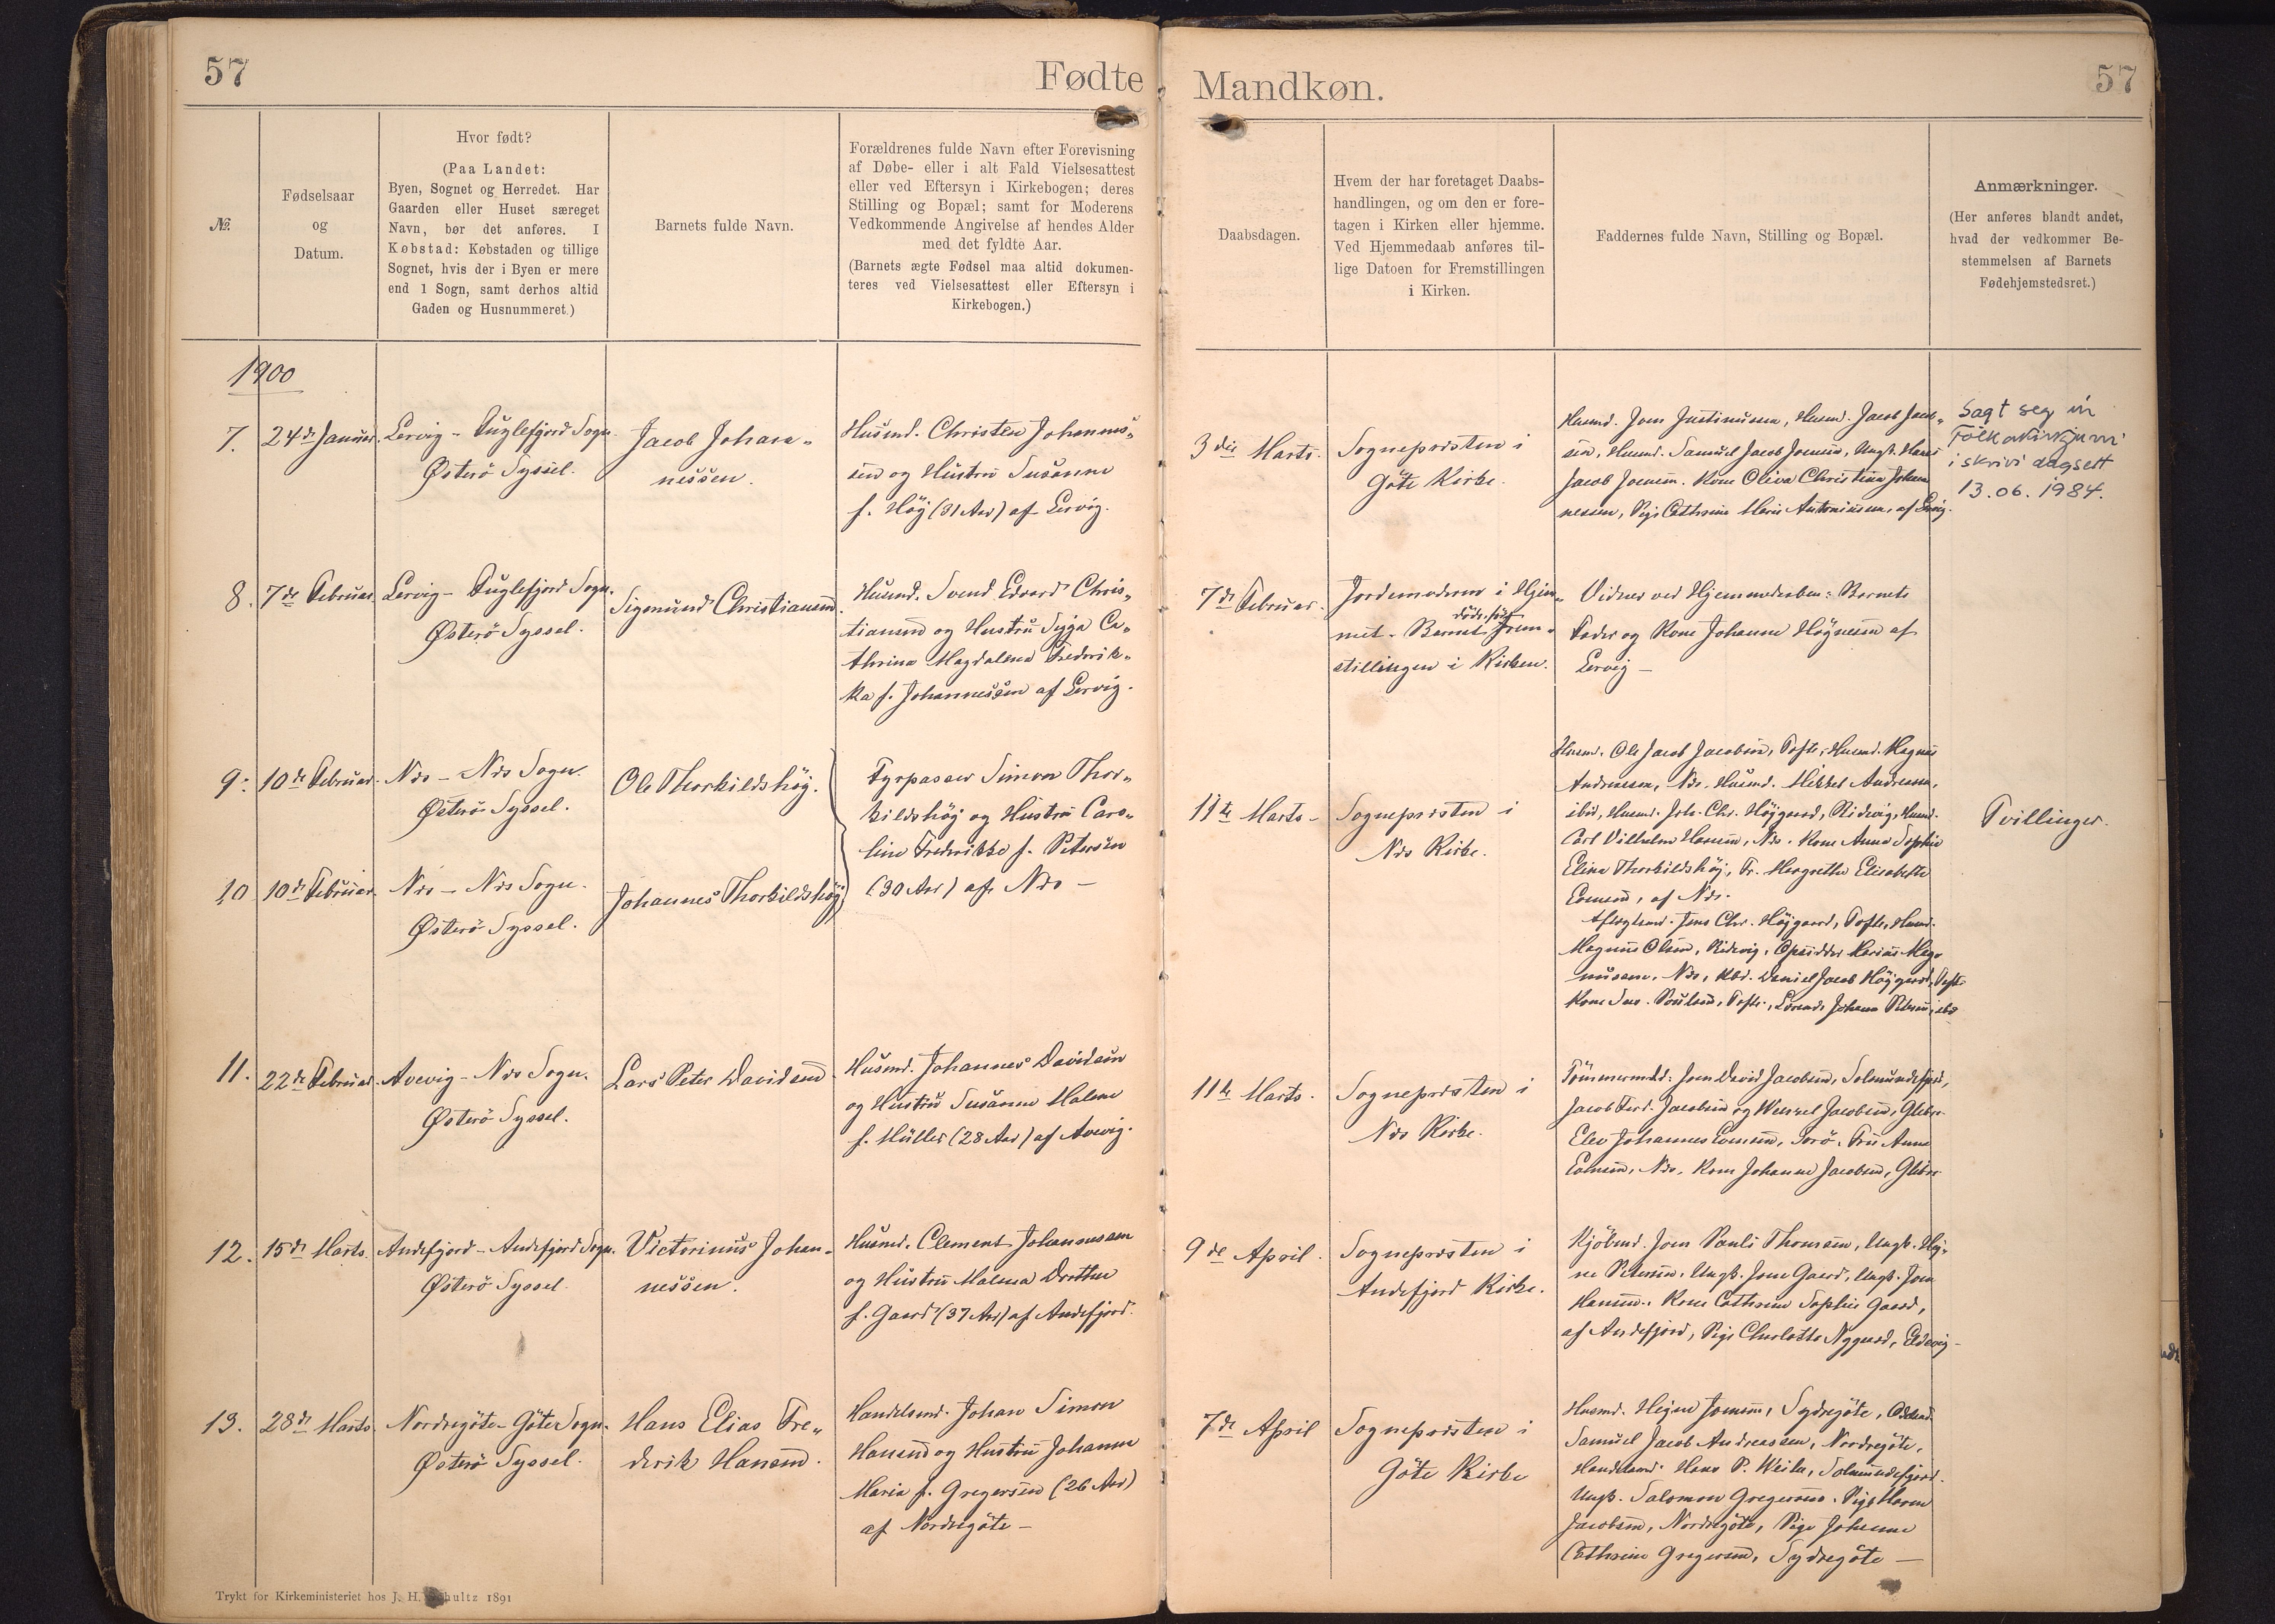 57
Fødte
Mandkøn.
57
№
Fødselsaar
og
Datum.
Hvor født?
(Paa Landet:
Byen, Sognet og Herredet. Har
Gaarden eller Huset særeget
Navn, bør det anføres. I
Købstad: Købstaden og tillige
Sognet, hvis der i Byen er mere
end 1 Sogn, samt derhos altid
Gaden og Husnummeret.)
Barnets fulde Navn.
Forældrenes fulde Navn efter Forevisning
af Døbe- eller i alt Fald Vielsesattest
eller ved Eftersyn i Kirkebogen; deres
Stilling og Bopæl; samt for Moderens
Vedkommende Angivelse af hendes Alder
med det fyldte Aar.
(Barnets ægte Fødsel maa altid dokumen-
teres ved Vielsesattest eller Eftersyn i
Kirkebogen.)
Daabsdagen.
Hvem der har foretaget Daabs-
handlingen, og om den er fore-
tagen i Kirken eller hjemme.
Ved Hjemmedaab anføres til-
lige Datoen for Fremstillingen
i Kirken.
Faddernes fulde Navn, Stilling og Bopæl.
Anmærkninger.
(Her anføres blandt andet,
hvad der vedkommer Be-
stemmelsen af Barnets
Fødehjemstedsret.)
1900
7.
24de Januar.
Lervig - Fuglefjord Sogn
Østerö Syssel.
Jacob Johan-
nessen.
Husmd. Christen Johannes-
sen og Hustru Susanne
f. Höj (31 Aar) af Lervig.
3die Marts.
Sognepræsten i
Göte Kirke.
Husmd. Joen Justinussen, Husmd. Jacob Jacob-
sen, Husmd. Samuel Jacob Joensen, Ungk. Hans
Jacob Joensen. Kone Oliva Christina Johan
nessen, Pige Cathrine Marie Antoniussen, af Lervig.
Sagt seg úr
Fólkakirkjuni
i skrivi dagsett
13.06.1984.
8.
7de Februar.
Lervig - Fuglefjord Sogn.
Østerö Syssel.
Sigmund Christiansen.
Husmd. Svend Edvard Chris-
tiansen og Hustru Sejja Ca-
thrina Magdalena Frederik-
ka f. Johannessen af Lervig.
7de Februar.
Jordemoderen i Hjem-
met. Barnet døde før Frem-
stillingen i Kirken.
Vidner ved Hjemmedaaben: Barnets
Fader og Kone Johanne Högnesen af
Lervig -
9.
10de Februar.
Næs - Næs Sogn.
Østerö Syssel.
Ole Thorkildshöj.
Fyrpasser Simon Thor-
kildshöj og Hustru Caro-
line Frederikke f. Petersen
(30 Aar) af Næs -
11te Marts -
Sognepræsten i
Næs Kirke.
Husmd. Ole Jacob Jacobsen, Tofte, Husmd. Magnus
Andreasen, Næs. Husmd. Mikkel Andreasen,
ibid, Husmd. Joh. Chr. Höjgaard, Ridevig, Husmd.
Carl Vilhelm Hansen, Næs. Kone Anna Sophie
Elina Thorkildshöj, Fr. Margrethe Elisabeth
Evensen, af Næs.
Tvillinger.
10
10de Februar.
Næs - Næs Sogn.
Østerö Syssel.
Johannes Thorkildshöj
Jens Chr. Höjgaard, Tofte, Husmd.
Magnus Olsen, Ridevig, Opsidder Marius Mag-
nussen, Næs, Daniel Jacob Höjgaard, Tofte
Kone Sus. Poulsen, Tofte, Johanne Petersen, ibd
11.
22de Februar.
Avevig - Næs Sogn.
Østerö Syssel.
Lars Peter Davidsen
Husmd. Johannes Davidsen
og Hustru Susanne Malene
f. Müller (28 Aar) af Avevig.
11te Marts.
Sognepræsten i
Næs Kirke.
Tömmermd: Joen David Jacobsen, Solmundefjord,
Jacob Ferd. Jacobsen og Wenzel Jacobsen, Glibre
Elev Johannes Evensen, Sorö. Fru Anna
Evensen, Næs. Kone Johanne Jacobsen, Glibre
12.
15de Marts.
Andefjord - Andefjord Sogn.
Østerö Syssel.
Victorinus Johan-
nessen.
Husmd. Clement Johannessen
og Hustru Malena Dorthea
f. Gaard (37 Aar) af Andefjord.
9de April.
Sognepræsten i
Andefjord Kirke.
Kjöbmd. Joen Pauli Thomsen, Ungk. Hej-
ne Petersen, Ungk. Jens Gaard, Ungk. Joen
Hansen. Kone Cathrine Sophie Gaard,
af Andefjord, Pige Charlotte Nygaard, Eldevig -
13.
28de Marts
Nordregöte - Göte Sogn.
Østerö Syssel.
Hans Elias Fre-
derik Hansen.
Handelsmd. Johan Simon
Hansen og Hustru Johanne
Maria f. Gregersen (26 Aar)
af Nordregöte -
7de April
Sognepræsten i
Göte Kirke
Husmd. Hejne Joensen, Sydregöte,
Samuel Jacob Andreassen, Nordregöte,
Handelsmd. Hans P. Weihe, Solmundefjord.
Ungk. Salomon Gregersen. Pige Maren
Jacobsen, Nordregöte, Pige Johanne
Cathrine Gregersen, Sydregöte -
Trykt for Kirkeministeriet hos J. H. Schultz 1891